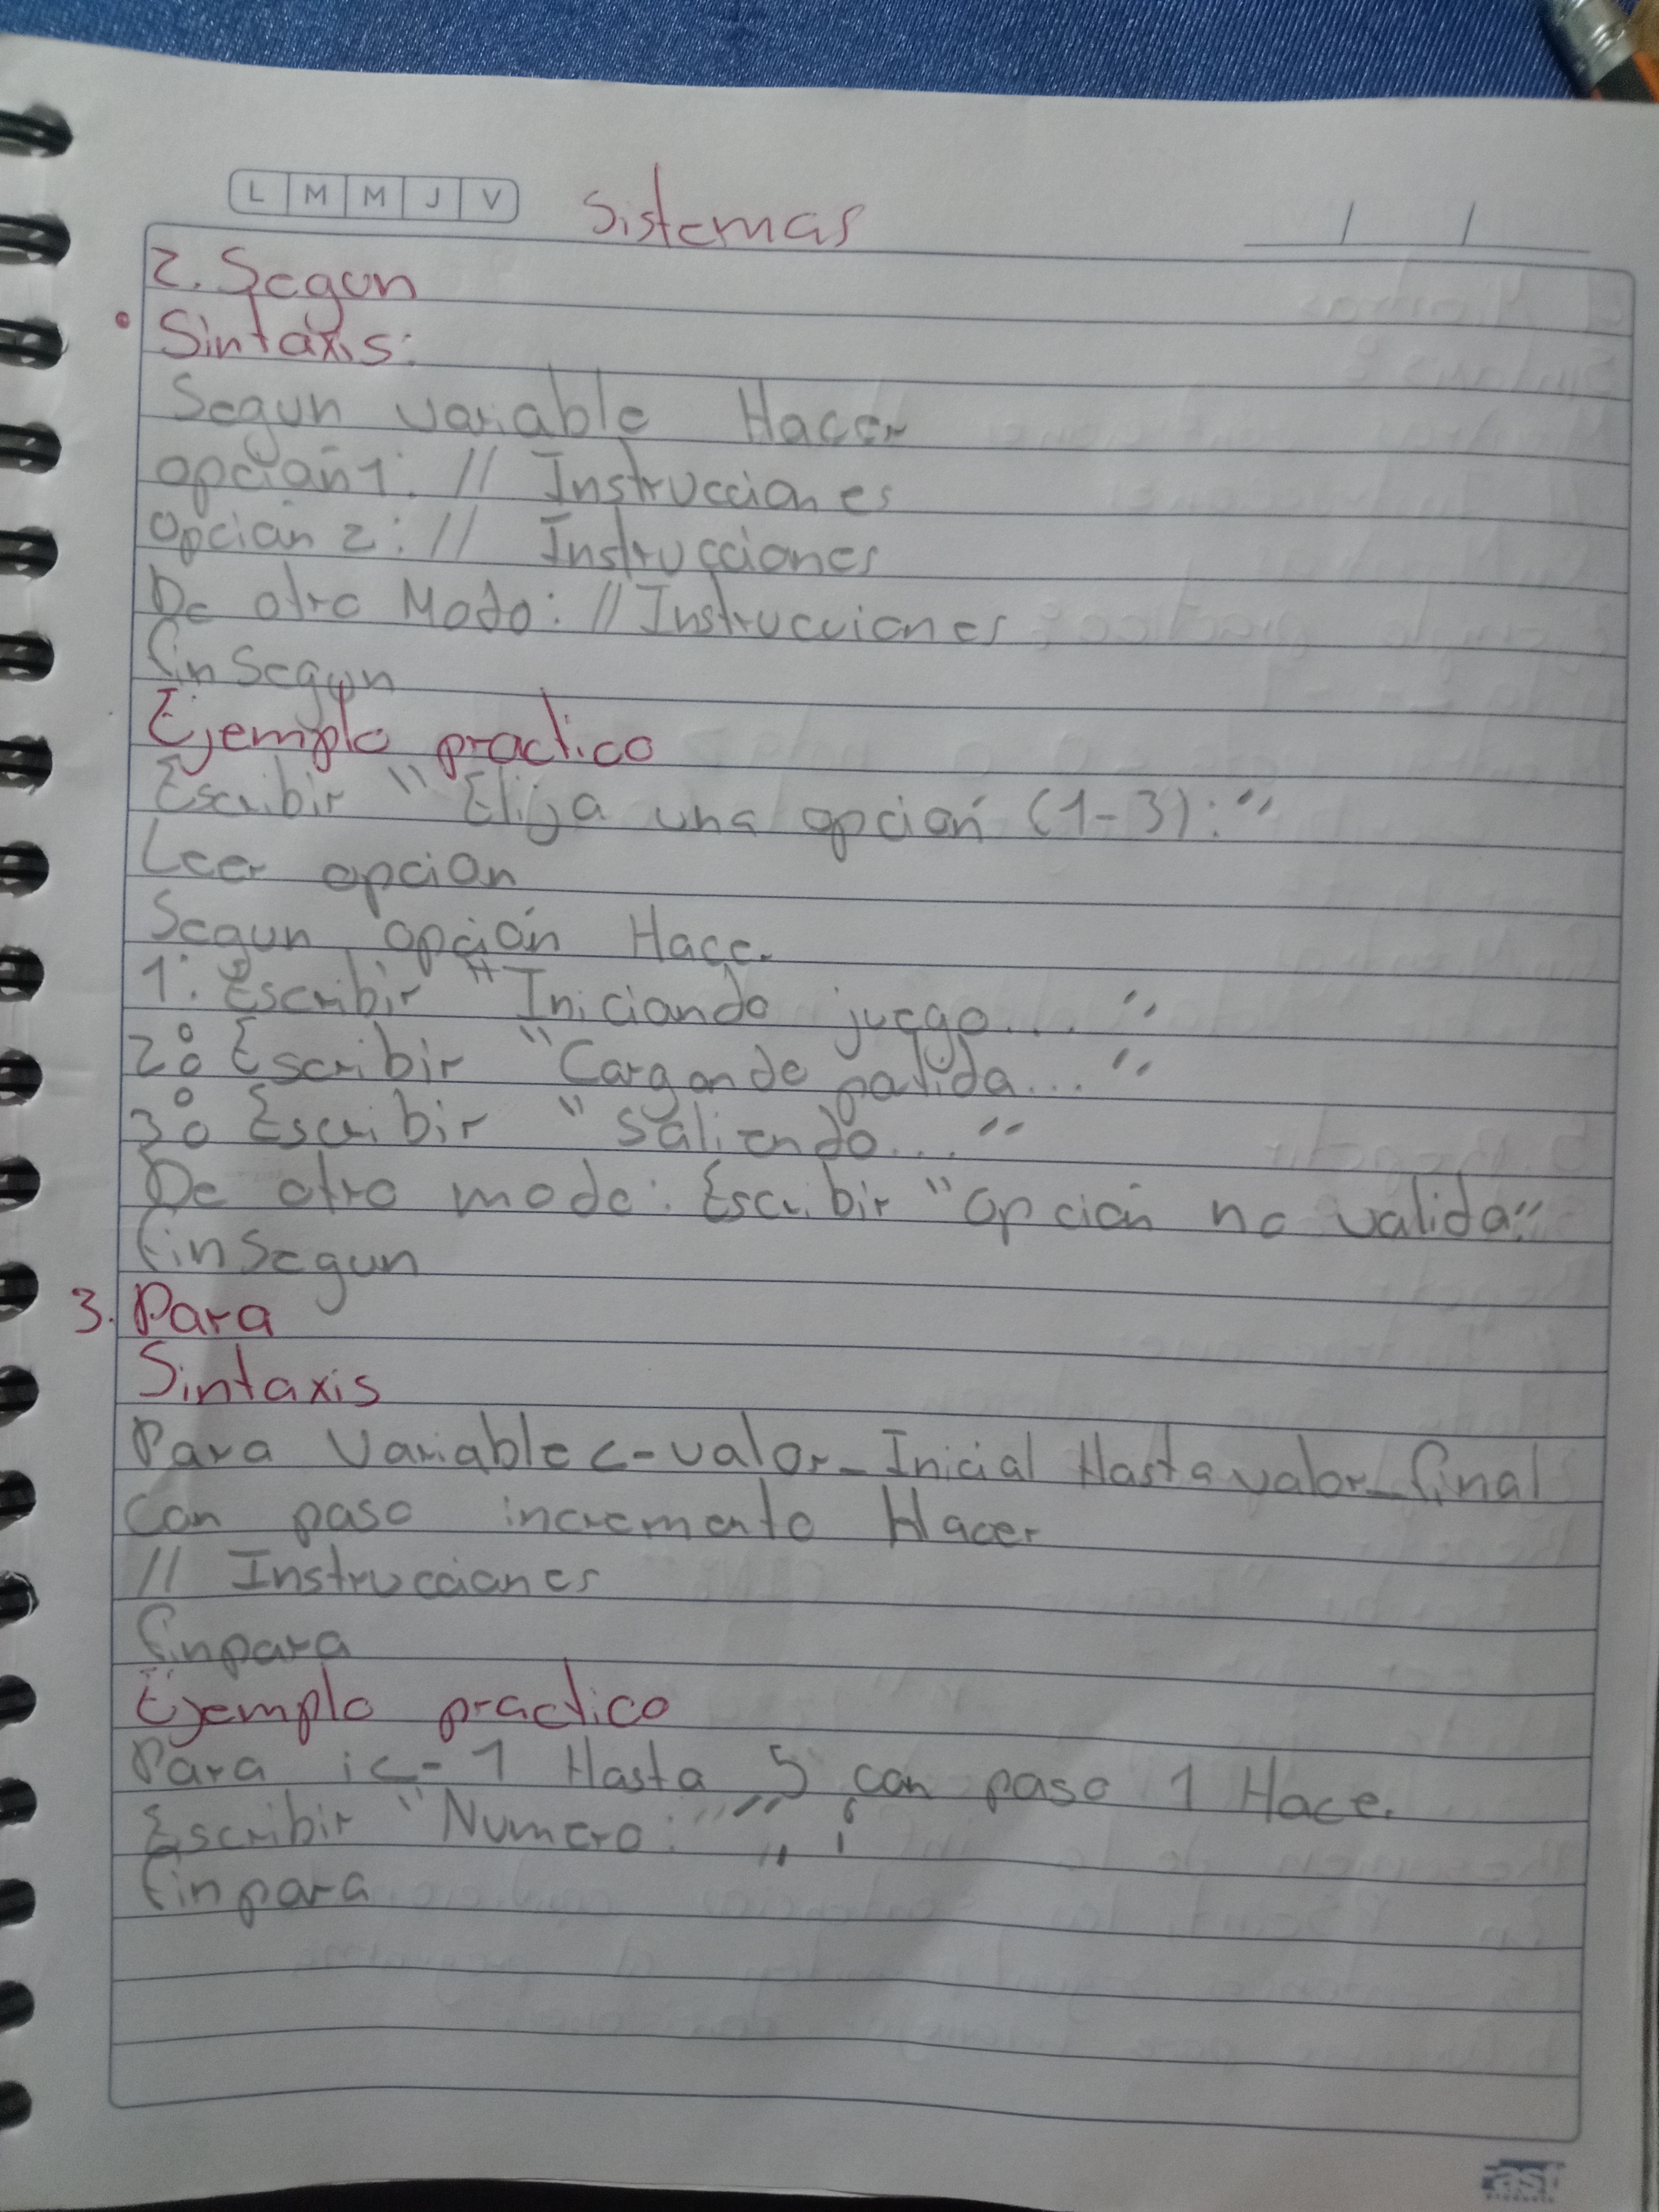 L M M J V
Sistemas
2. Segun
Sintaxis:
Segun variable Hacer
opción 1: // Instrucciones
opción 2: // Instrucciones
De otro Modo: // Instrucciones
fin segun
Ejemplo practico
Escribir "Elija una opción (1-3):"
Leer opcion
Segun opción Hacer
1: Escribir "Iniciando juego..."
2: Escribir "Cargando partida..."
3: Escribir "saliendo..."
De otro modo: Escribir "opción no valida"
finsegun
3. Para
Sintaxis
Para Variable <- valor_Inicial Hasta valor_final
con paso incremento Hacer
// Instrucciones
finpara
Ejemplo practico
Para i <- 1 Hasta 5 con paso 1 Hacer
Escribir "Numero: ", i
finpara